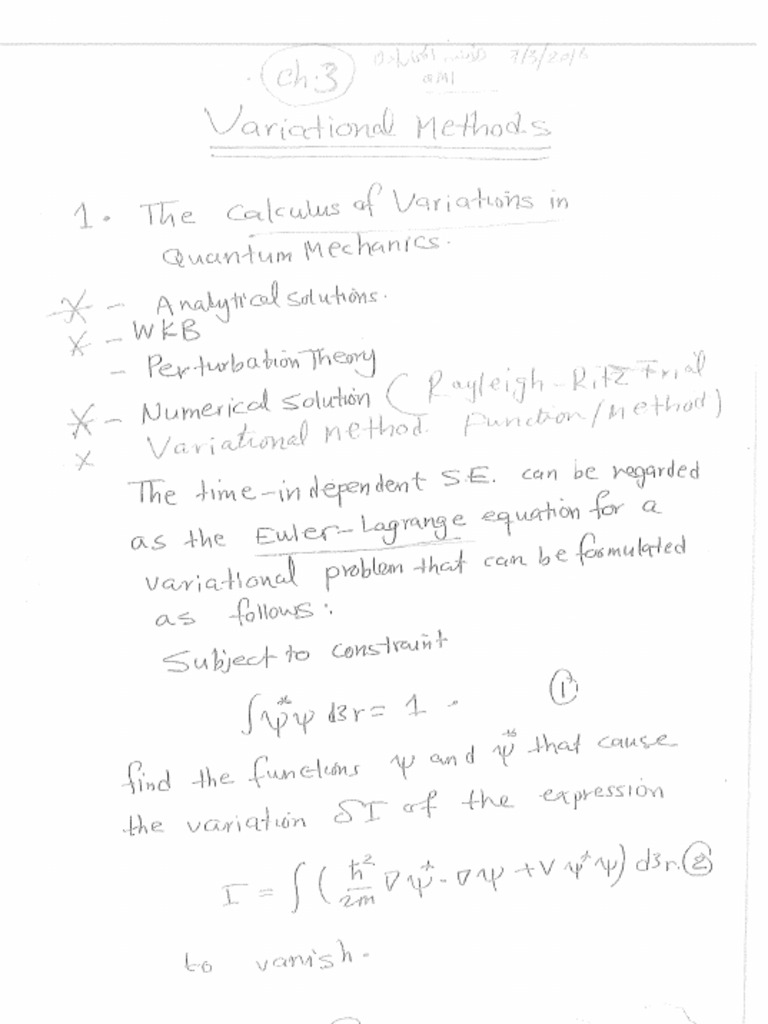 Ch.3 7/3/2016
Variational Methods
1. The Calculus of Variations in
Quantum Mechanics.
X - Analytical solutions.
X - WKB
- Perturbation Theory
X - Numerical Solution (Rayleigh-Ritz Trial
X Variational Method. Function/Method)
The time-independent S.E. can be regarded
as the Euler-Lagrange equation for a
variational problem that can be formulated
as follows:
Subject to constraint
∫ψ*ψ d3r = 1. ①
find the functions ψ and ψ* that cause
the variation δI of the expression
I = ∫(ħ²/2m ∇ψ*·∇ψ + V ψ*ψ) d3r. ②
to vanish.